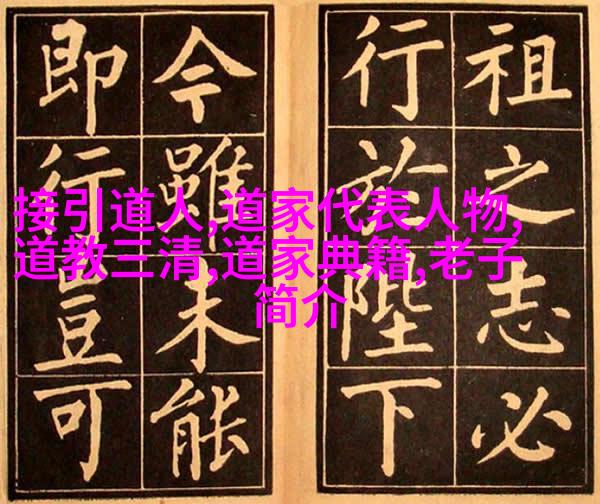 祖之志必
行於陛下
今雖未能
即行豈可
接引道人,道家代表人物,
道教三清,道家典籍,老子
简介